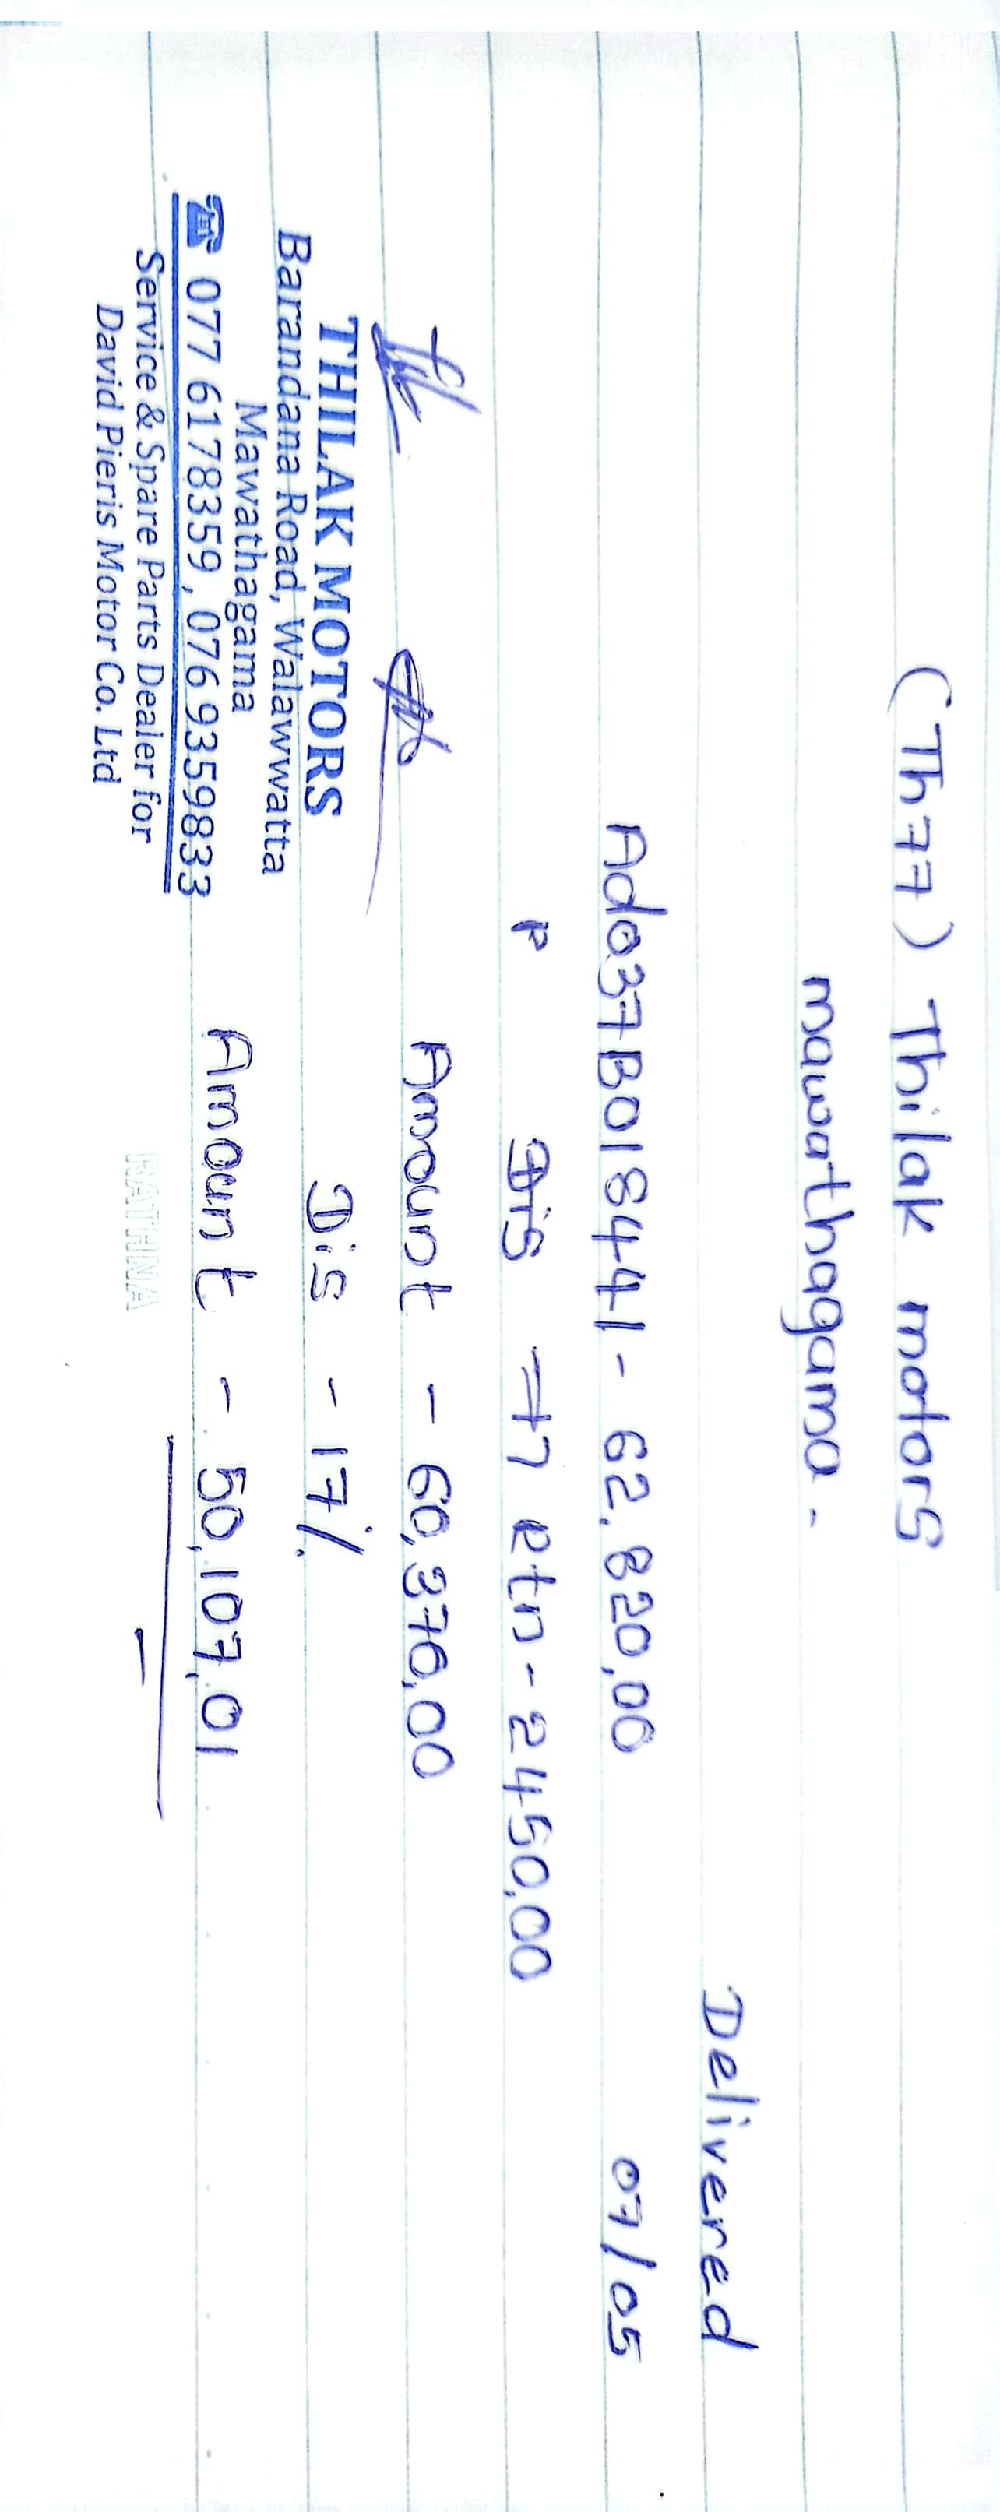 (Th77) Thilak motors
mawathagama.
Delivered
Ado37B018441 - 62,820,00
07/05
Dis 17 etn - 2450,00
Amount - 60,370,00
Dis - 17%
Amount - 50,107,01
THILAK MOTORS
Barandana Road, Walawwatta
Mawathagama
☎ 077 6178359, 076 9359833
Service & Spare Parts Dealer for
David Pieris Motor Co. Ltd
RATHNA